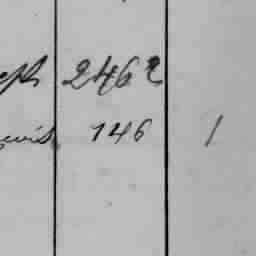 eph 2462
ewis 146 1